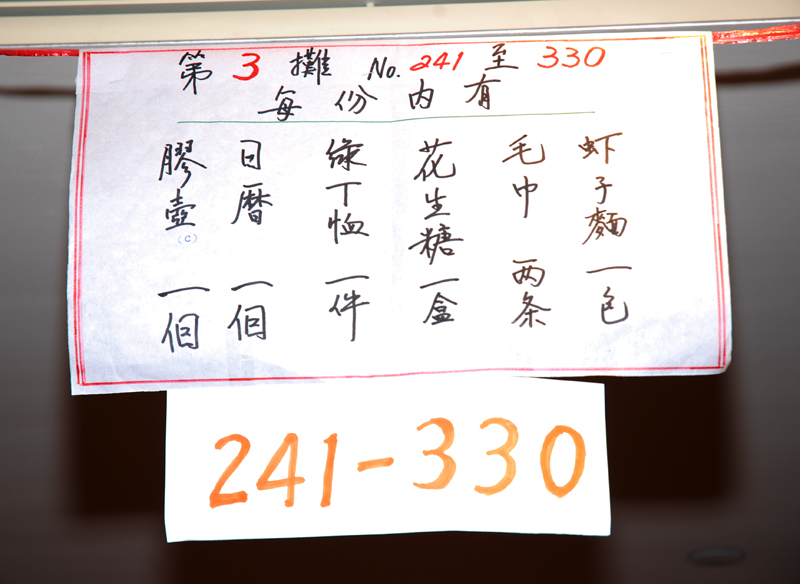 第 3 攤 No. 241 至 330
每份内有
虾子麵一包
毛巾 两条
花生糖一盒
綠丁恤一件
日曆 一個
膠壺 (C) 一個
241-330